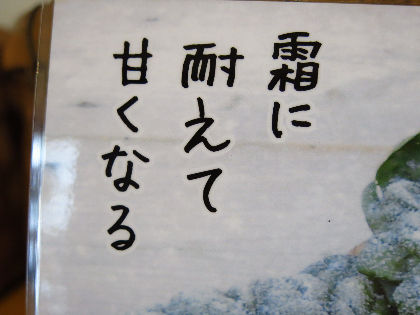 霜に
耐えて
甘くなる